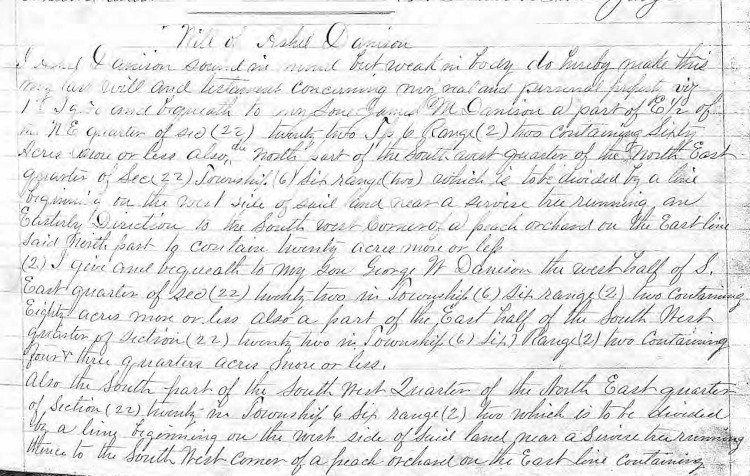 Will of Askel Danison
I Askel Danison sound in mind but weak in body do hereby make this
my last will and testament concerning my real and personal property viz
1st I give and bequeath to my Son James M Danison a part of E ½ of
N E quarter of sec (22) twenty two Tp 6 Range (2) two containing Sixty
Acres more or less also the North part of the South west quarter of the North East
quarter of Sec (22) Township (6) Six range (two) which is to be divided by a line
beginning on the west side of said land near a servise tree running an
Easterly Direction to the South West Corner of a peach orchard on the East line
said North part to contain twenty acres more or less
(2) I give and bequeath to my Son George W Danison the west half of S.
East quarter of sec (22) twenty two in Township (6) Six range (2) two containing
Eighty acres more or less also a part of the East half of the South West
quarter of section (22) twenty two in Township (6) Six Range (2) two Containing
four & three quarters acres more or less.
Also the South part of the South West Quarter of the North East quarter
of Section (22) twenty in Township 6 Six range (2) two which is to be divided
by a line beginning on the west side of said land near a Servise tree running
thence to the South West corner of a peach orchard on the East line containing